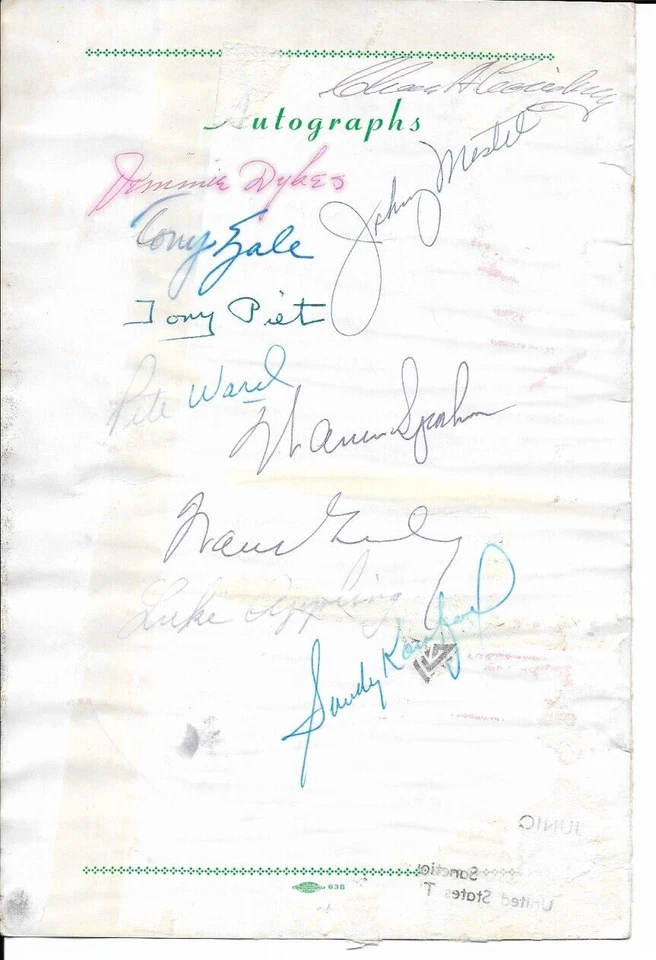 Autographs
Jimmie Dykes
Johnny Mostil
Tony Zale
Tony Piet
Pete Ward
Warren Spahn
Luke Appling
Sandy Koufax
JUNIO
638
Sanctio
United States T